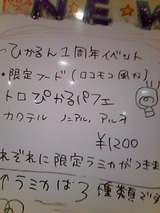 NEW
ひかるん1周年イベント
・限定フード(ロコモコ風な)
トロぴかるパフェ
カクテル ノンアル、アルオ
¥1200
れぞれに限定ラミカがつきま
↑ラミカは3種類です